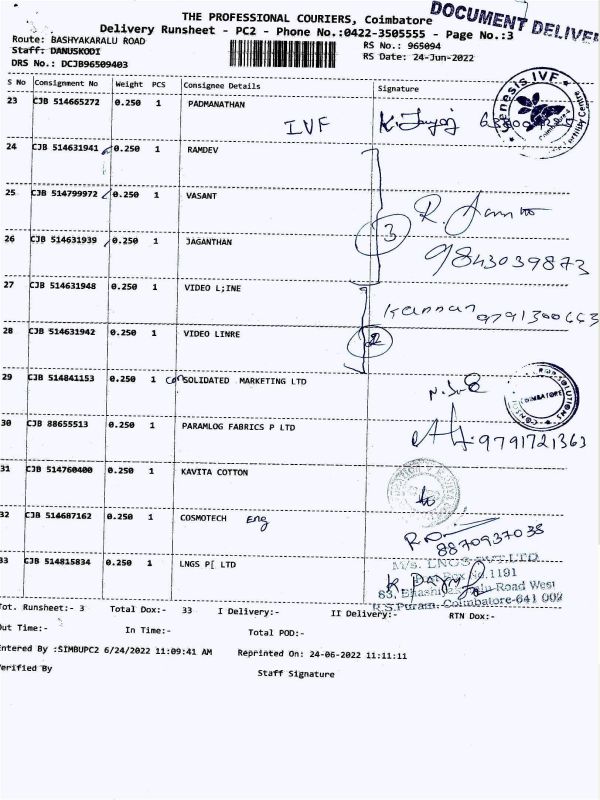 THE PROFESSIONAL COURIERS, Coimbatore
DOCUMENT DELIVE
Delivery Runsheet - PC2 - Phone No.:0422-3505555 - Page No.:3
Route: BASHYAKARALU ROAD
RS No.: 965094
Staff: DANUSKODI
RS Date: 24-Jun-2022
DRS No.: DCJB96509403
S No Consignment No Weight PCS Consignee Details Signature
23 CJB 514665272 0.250 1 PADMANATHAN
IVF
Genesis IVF
Coimbatore
24 CJB 514631941 0.250 1 RAMDEV
25 CJB 514799972 0.250 1 VASANT
3
26 CJB 514631939 0.250 1 JAGANTHAN
9843039873
27 CJB 514631948 0.250 1 VIDEO L;INE
Kannan 9791300663
28 CJB 514631942 0.250 1 VIDEO LINRE
2
29 CJB 514841153 0.250 1 Con SOLIDATED MARKETING LTD
COIMBATORE
30 CJB 88655513 0.250 1 PARAMLOG FABRICS P LTD
9791721363
31 CJB 514760400 0.250 1 KAVITA COTTON
32 CJB 514687162 0.250 1 COSMOTECH Eng
8870937038
33 CJB 514815834 0.250 1 LNGS P[ LTD
M/s. LNGS PVT LTD
No.1191
Road West
R.S.Puram, Coimbatore-641 002
Tot. Runsheet:- 3 Total Dox:- 33 I Delivery:- II Delivery:- RTN Dox:-
Out Time:- In Time:- Total POD:-
Entered By :SIMBUPC2 6/24/2022 11:09:41 AM Reprinted On: 24-06-2022 11:11:11
Verified By Staff Signature